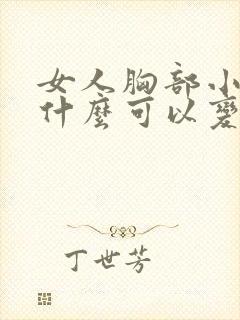 女人胸部小
什麼可以變
丁世芳